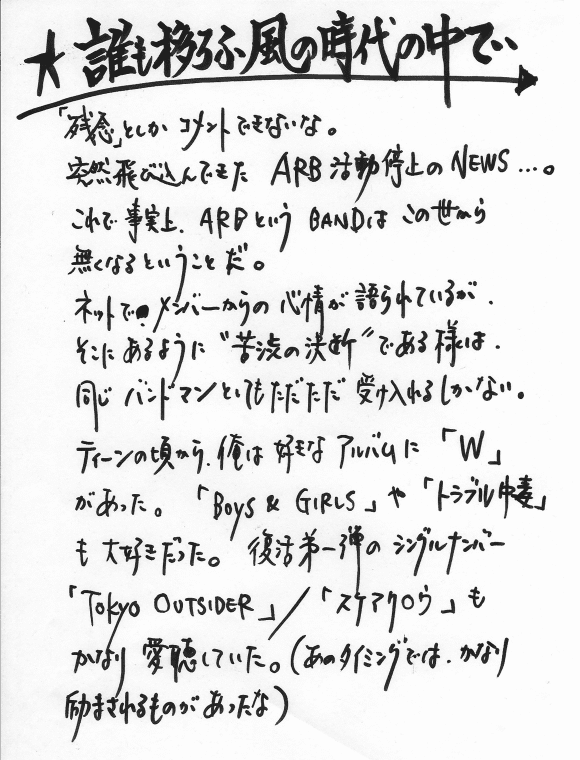 ★誰も移ろふ風の時代の中で
「残念」としかコメントできないな。
突然飛び込んできた ARB活動停止のNEWS…。
これで事実上、ARBというBANDはこの世から
無くなるということだ。
ネットで、メンバーからの心情が語られているが、
そこにあるように“苦渋の決断”である様は、
同じバンドマンとしてもただただ受け入れるしかない。
ティーンの頃から、俺は好きなアルバムに「W」
があった。「BOYS & GIRLS」や「トラブル中毒」
も大好きだった。復活第一弾のシングルナンバー
「TOKYO OUTSIDER」/「スケアクロウ」も
かなり愛聴していた。(あのタイミングでは、かなり
励まされるものがあったな)